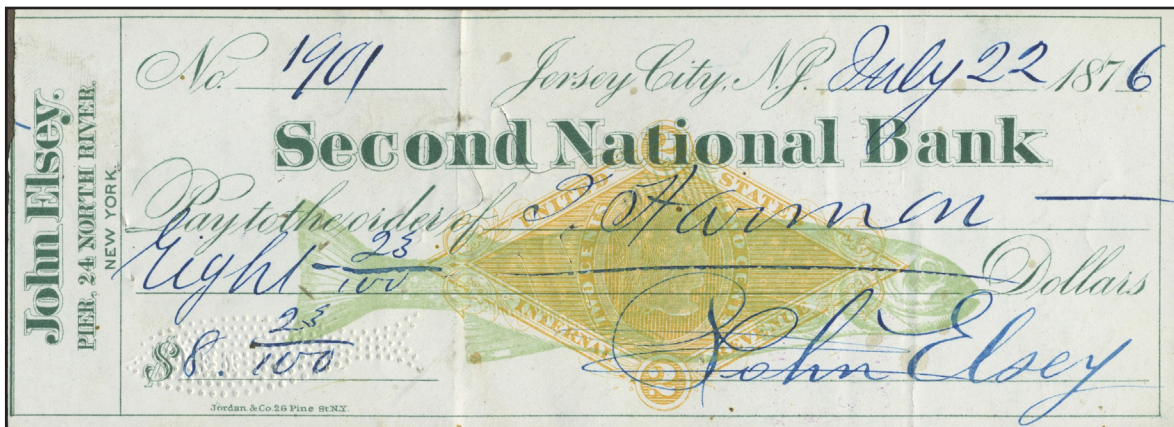 John Elsey.
PIER, 24 NORTH RIVER.
NEW YORK.
No. 1901 Jersey City, N.J. July 22 1876
Second National Bank
Pay to the order of T. Harmon
Eight 23/100 Dollars
$8. 23/100
John Elsey
Jordan & Co. 26 Pine St. N.Y.
2
UNITED STATES
INTERNAL REVENUE
2